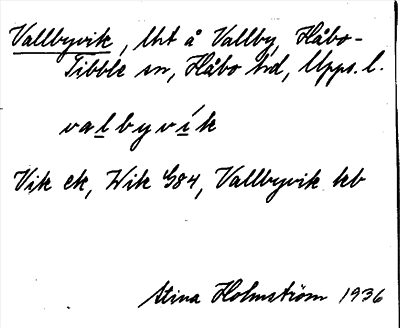 Vallbyvik, lht å Vallby, Håbo-
Tibble sn, Håbo hd, Upps. l.
valbyvík
Vik ek, Wik G84, Vallbyvik kb
Stina Holmström 1936